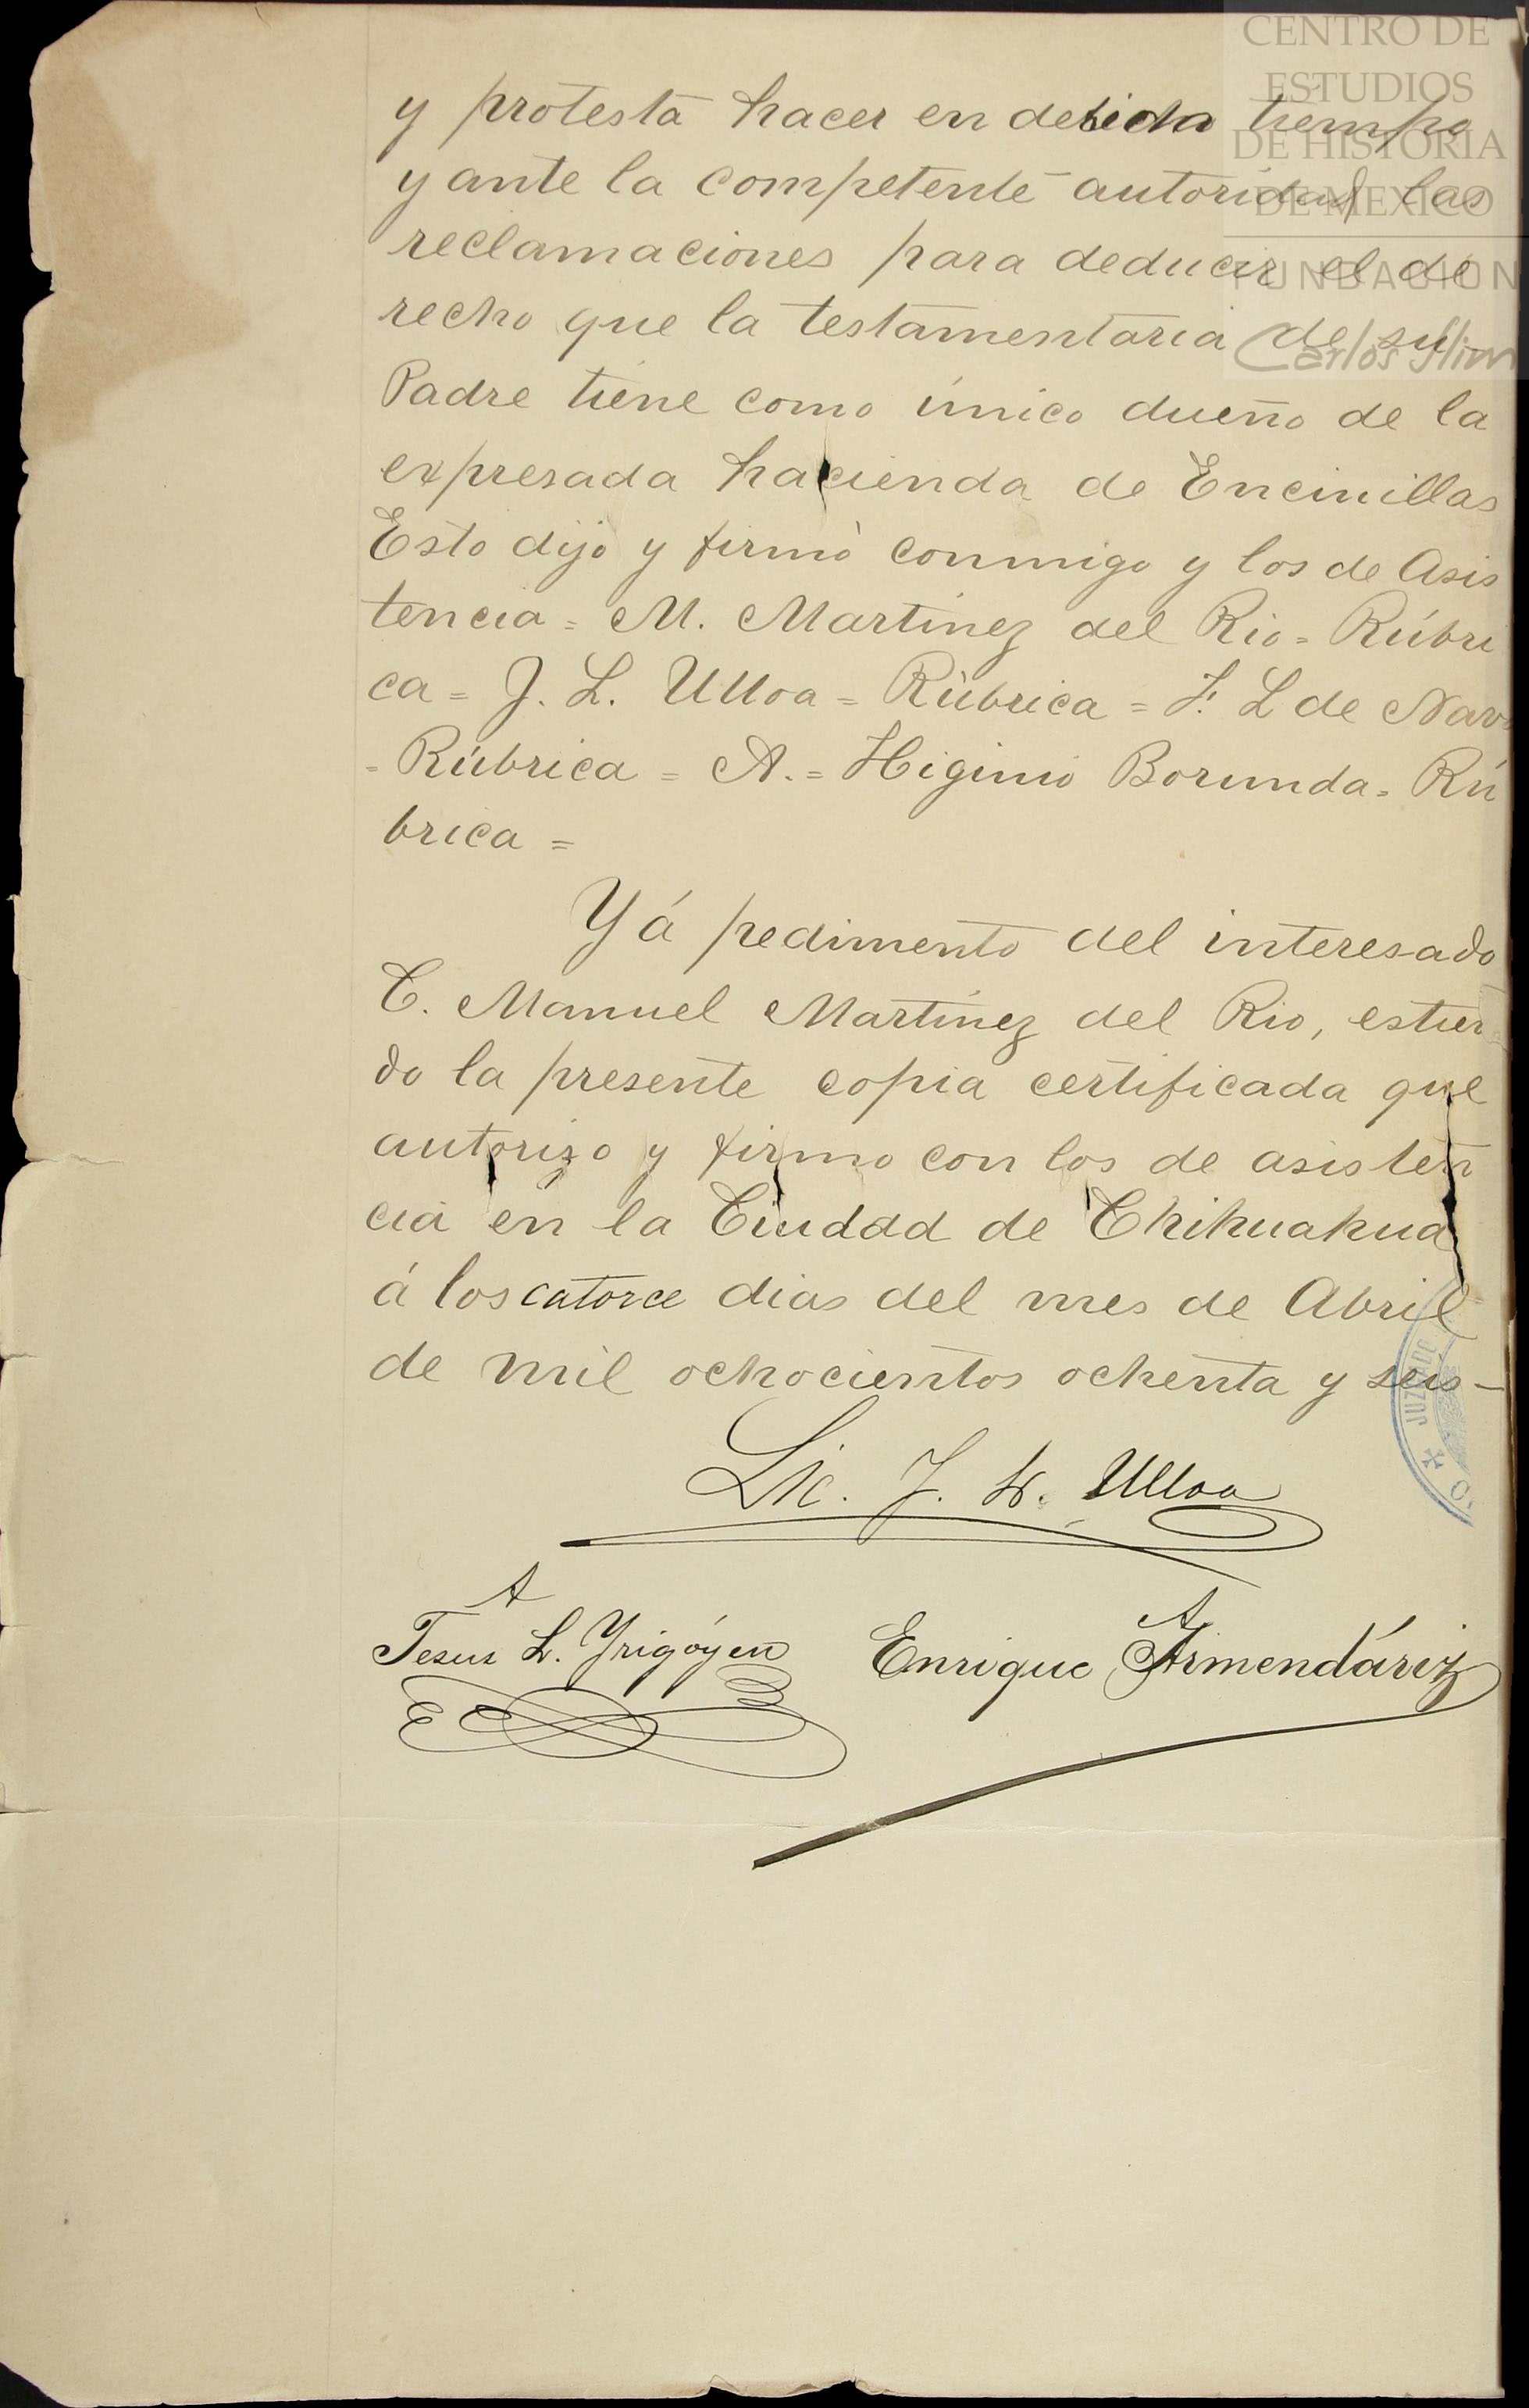 CENTRO DE
ESTUDIOS
DE HISTORIA
DE MEXICO
FUNDACION
Carlos Slim
y protesta hacer en debido tiempo
y ante la competente autoridad las
reclamaciones para deducir el de
recho que la testamentaria de su
Padre tiene como único dueño de la
expresada hacienda de Encinillas
Esto dijo y firmó conmigo y los de Asis
tencia = M. Martinez del Rio = Rúbri
ca = J. L. Ulloa = Rúbrica = F. L de Nava
= Rúbrica = A. = Higinio Borunda = Rú
brica =
Y á pedimento del interesado
C. Manuel Martinez del Rio, estien
do la presente copia certificada que
autorizo y firmo con los de asisten
cia en la Ciudad de Chihuahua
á los catorce dias del mes de Abril
de mil ochocientos ochenta y seis —
JUZGADO
Lic. J. L. Ulloa
A A
Jesus L. Yrigóyen Enrique Armendáriz